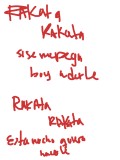 RAKATA
KaKata
si se me pega
boy a darle
RaKaTa
RaKATA
Esta noche quiero
hacerle